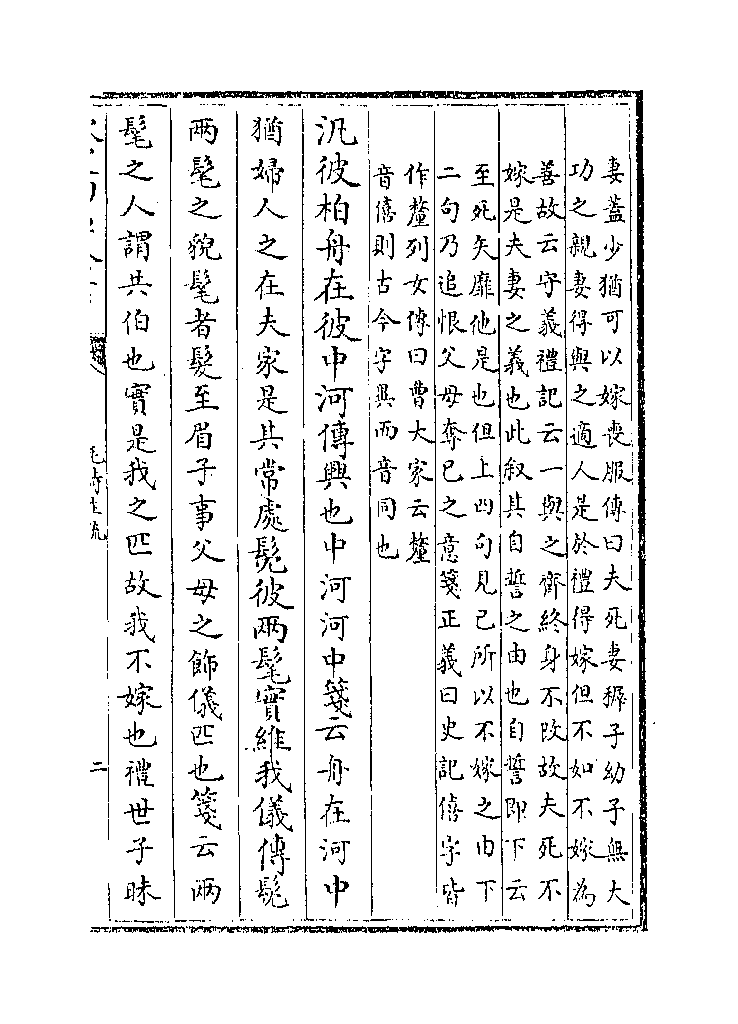 妻蓋少猶可以嫁喪服傳曰夫死妻穉子幼子無大
功之親妻得與之適人是於禮得嫁但不如不嫁為
善故云守義禮記云一與之齊終身不改故夫死不
嫁是夫妻之義也此叙其自誓之由也自誓即下云
至死矢靡他是也但上四句見己所以不嫁之由下
二句乃追恨父母奪己之意箋正義曰史記僖字皆
作釐列女傳曰曹大家云釐
音僖則古今字異而音同也
汎彼柏舟在彼中河傳興也中河河中箋云舟在河中
猶婦人之在夫家是其常處髧彼兩髦實維我儀傳髧
兩髦之貌髦者髮至眉子事父母之飾儀匹也箋云兩
髦之人謂共伯也實是我之匹故我不嫁也禮世子昧
毛詩註疏
二